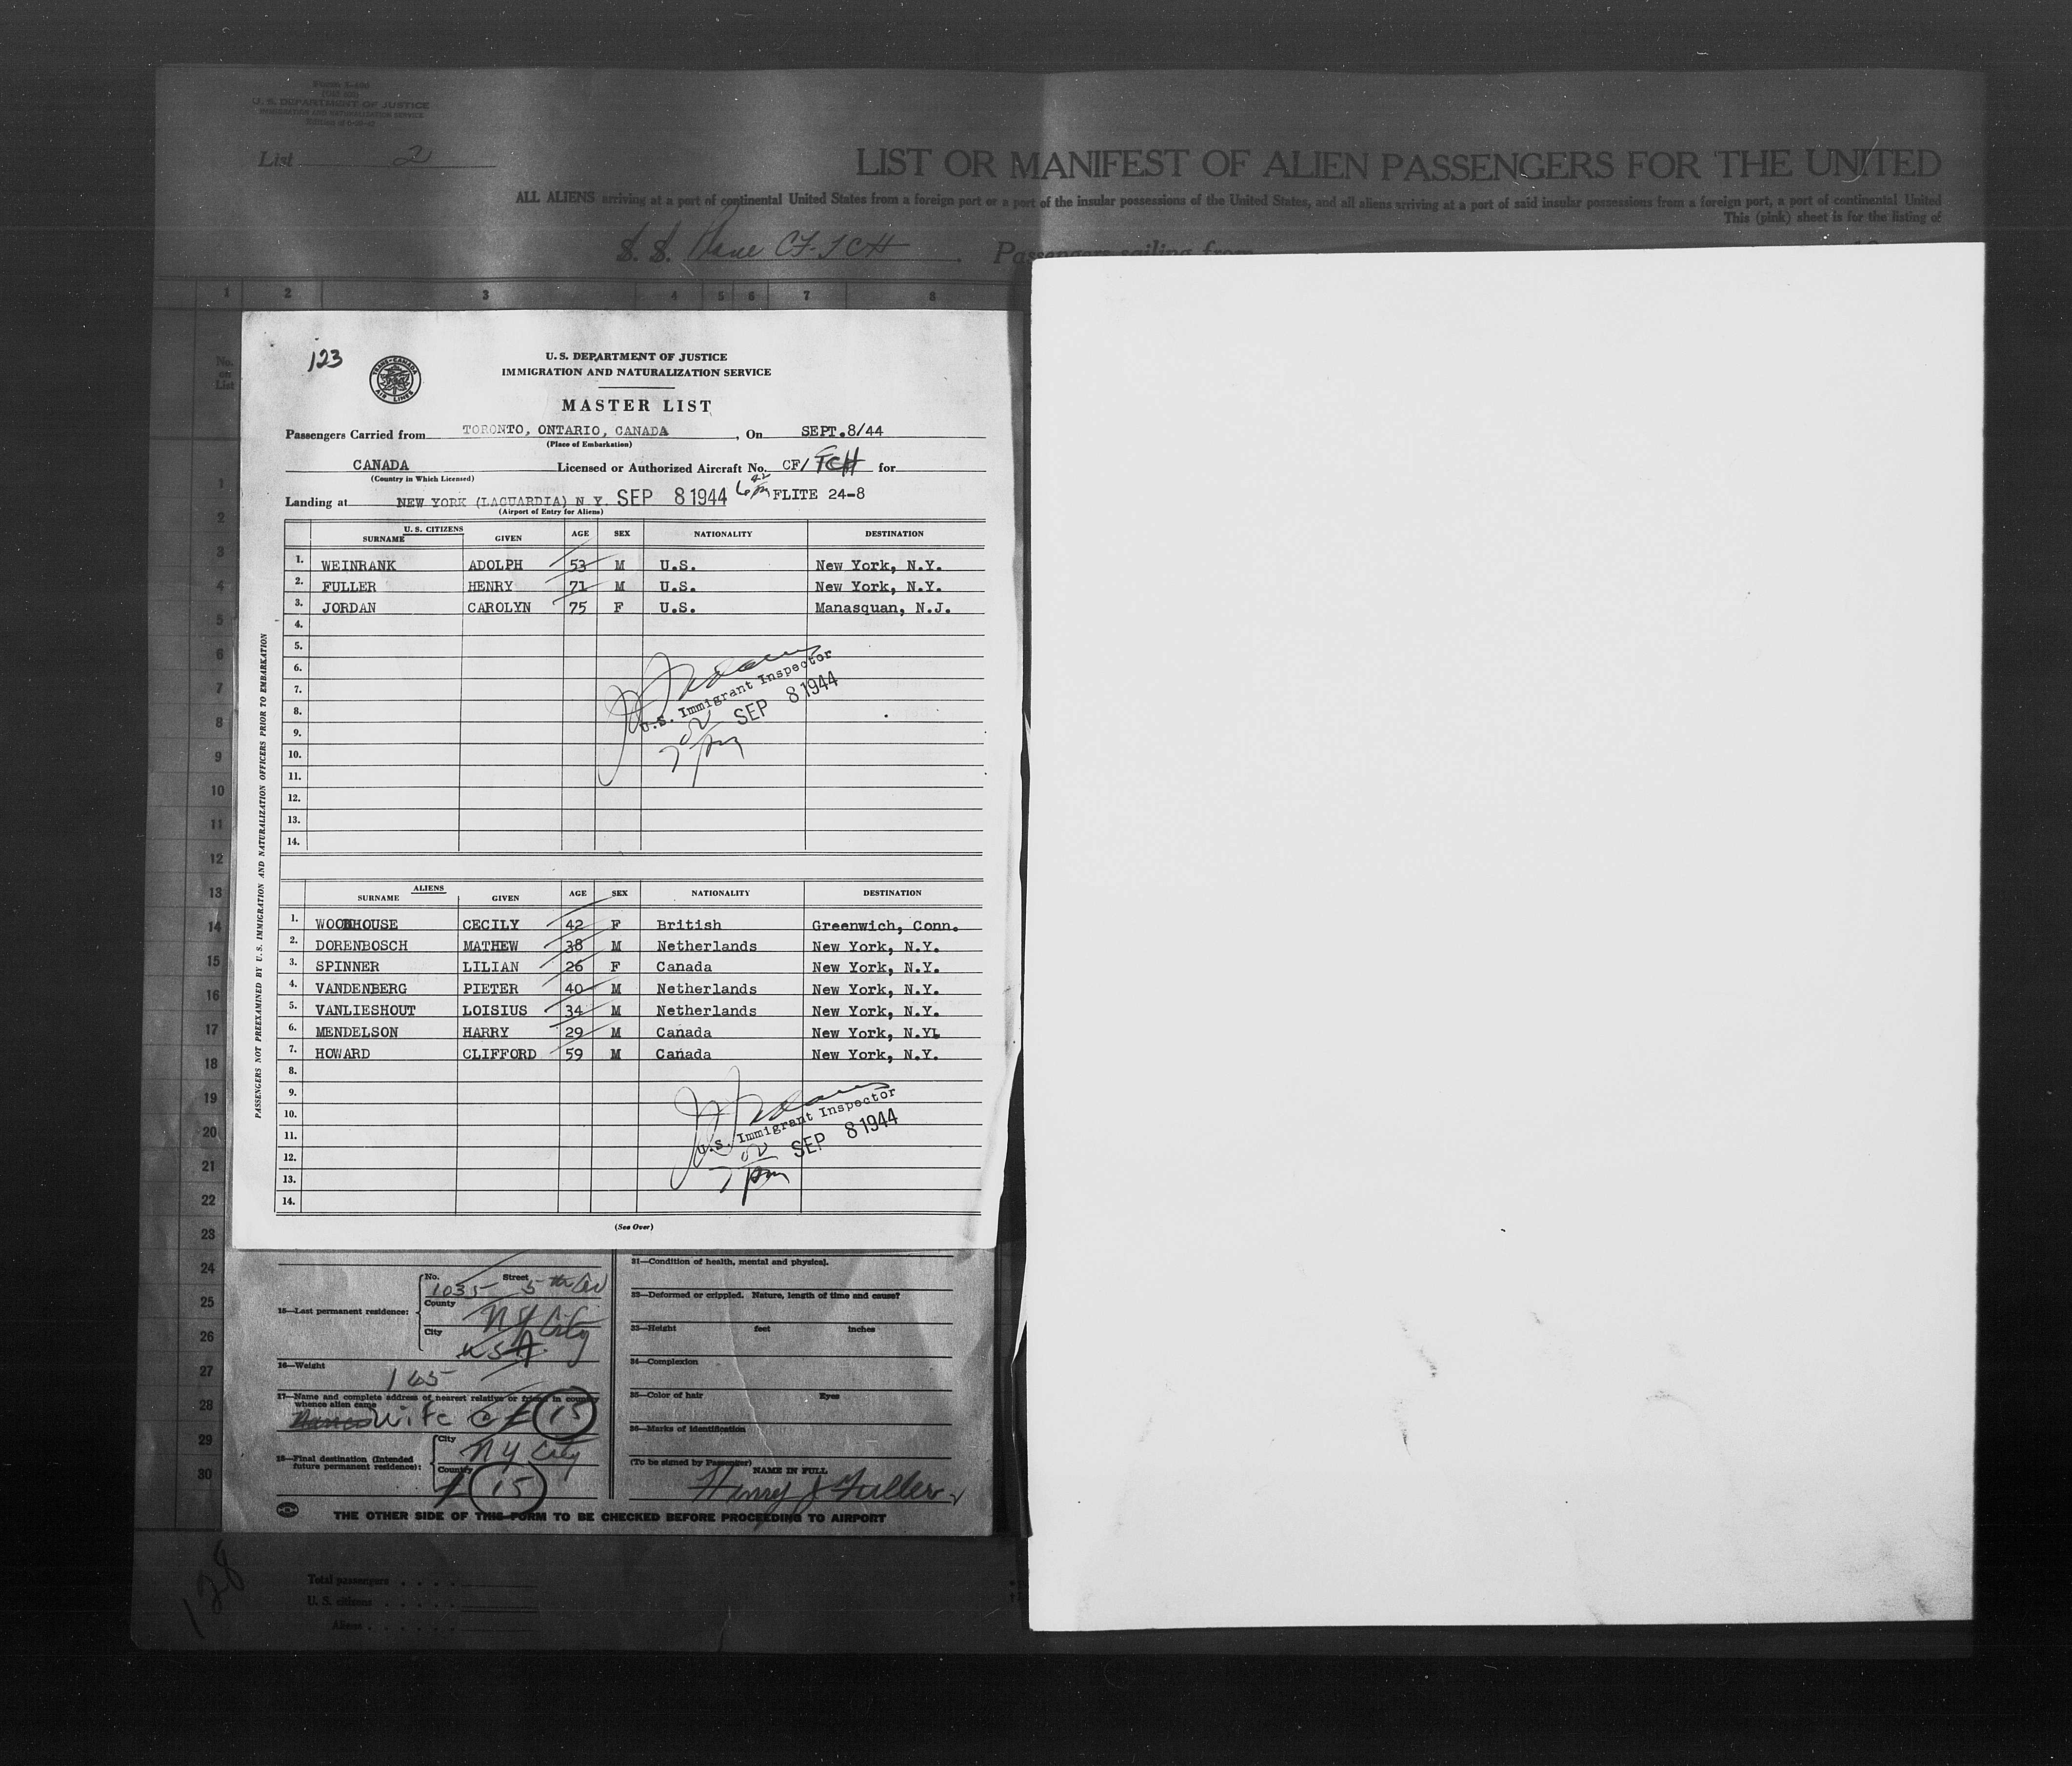 U. S. DEPARTMENT OF JUSTICE
IMMIGRATION AND NATURALIZATION SERVICE
List 2
LIST OR MANIFEST OF ALIEN PASSENGERS FOR THE UNITED
ALL ALIENS arriving at a port of continental United States from a foreign port or a port of the insular possessions of the United States, and all aliens arriving at a port of said insular possessions from a foreign port, a port of continental United
This (pink) sheet is for the listing of
S. S. Plane CF-TCH Passengers sailing from
1 2 3 4 5 6 7 8
No. on List
123
TRANS-CANADA AIR LINES
U. S. DEPARTMENT OF JUSTICE
IMMIGRATION AND NATURALIZATION SERVICE
MASTER LIST
Passengers Carried from TORONTO, ONTARIO, CANADA, On SEPT.8/44
(Place of Embarkation)
CANADA Licensed or Authorized Aircraft No. CF/TCH for
(Country in Which Licensed)
Landing at NEW YORK (LAGUARDIA) N.Y. SEP 8 1944 6 42 pm FLITE 24-8
(Airport of Entry for Aliens)
U. S. CITIZENS
SURNAME GIVEN AGE SEX NATIONALITY DESTINATION
1. WEINRANK ADOLPH 53 M U.S. New York, N.Y.
2. FULLER HENRY 71 M U.S. New York, N.Y.
3. JORDAN CAROLYN 75 F U.S. Manasquan, N.J.
4.
5.
6.
7.
8.
9.
10.
11.
12.
13.
14.
U.S. Immigrant Inspector
SEP 8 1944
7 02 pm
ALIENS
SURNAME GIVEN AGE SEX NATIONALITY DESTINATION
1. WOODHOUSE CECILY 42 F British Greenwich, Conn.
2. DORENBOSCH MATHEW 38 M Netherlands New York, N.Y.
3. SPINNER LILIAN 26 F Canada New York, N.Y.
4. VANDENBERG PIETER 40 M Netherlands New York, N.Y.
5. VANLIESHOUT LOISIUS 34 M Netherlands New York, N.Y.
6. MENDELSON HARRY 29 M Canada New York, N.YL
7. HOWARD CLIFFORD 59 M Canada New York, N.Y.
8.
9.
10.
11.
12.
13.
14.
U.S. Immigrant Inspector
SEP 8 1944
7 02 pm
(See Over)
PASSENGERS NOT PREEXAMINED BY U. S. IMMIGRATION AND NATURALIZATION OFFICERS PRIOR TO EMBARKATION
1
2
3
4
5
6
7
8
9
10
11
12
13
14
15
16
17
18
19
20
21
22
23
24
25
26
27
28
29
30
15—Last permanent residence: No. 1035 Street 5th Av
County NY City
City USA
16—Weight 165
17—Name and complete address of nearest relative or friend in country whence alien came
Wife 15
18—Final destination (Intended future permanent residence): City NY City
Country 15
31—Condition of health, mental and physical.
32—Deformed or crippled. Nature, length of time and cause?
33—Height feet inches
34—Complexion
35—Color of hair Eyes
36—Marks of identification
(To be signed by Passenger)
NAME IN FULL
Henry J Fuller
THE OTHER SIDE OF THIS FORM TO BE CHECKED BEFORE PROCEEDING TO AIRPORT
128
Total passengers
U. S. citizens
Aliens